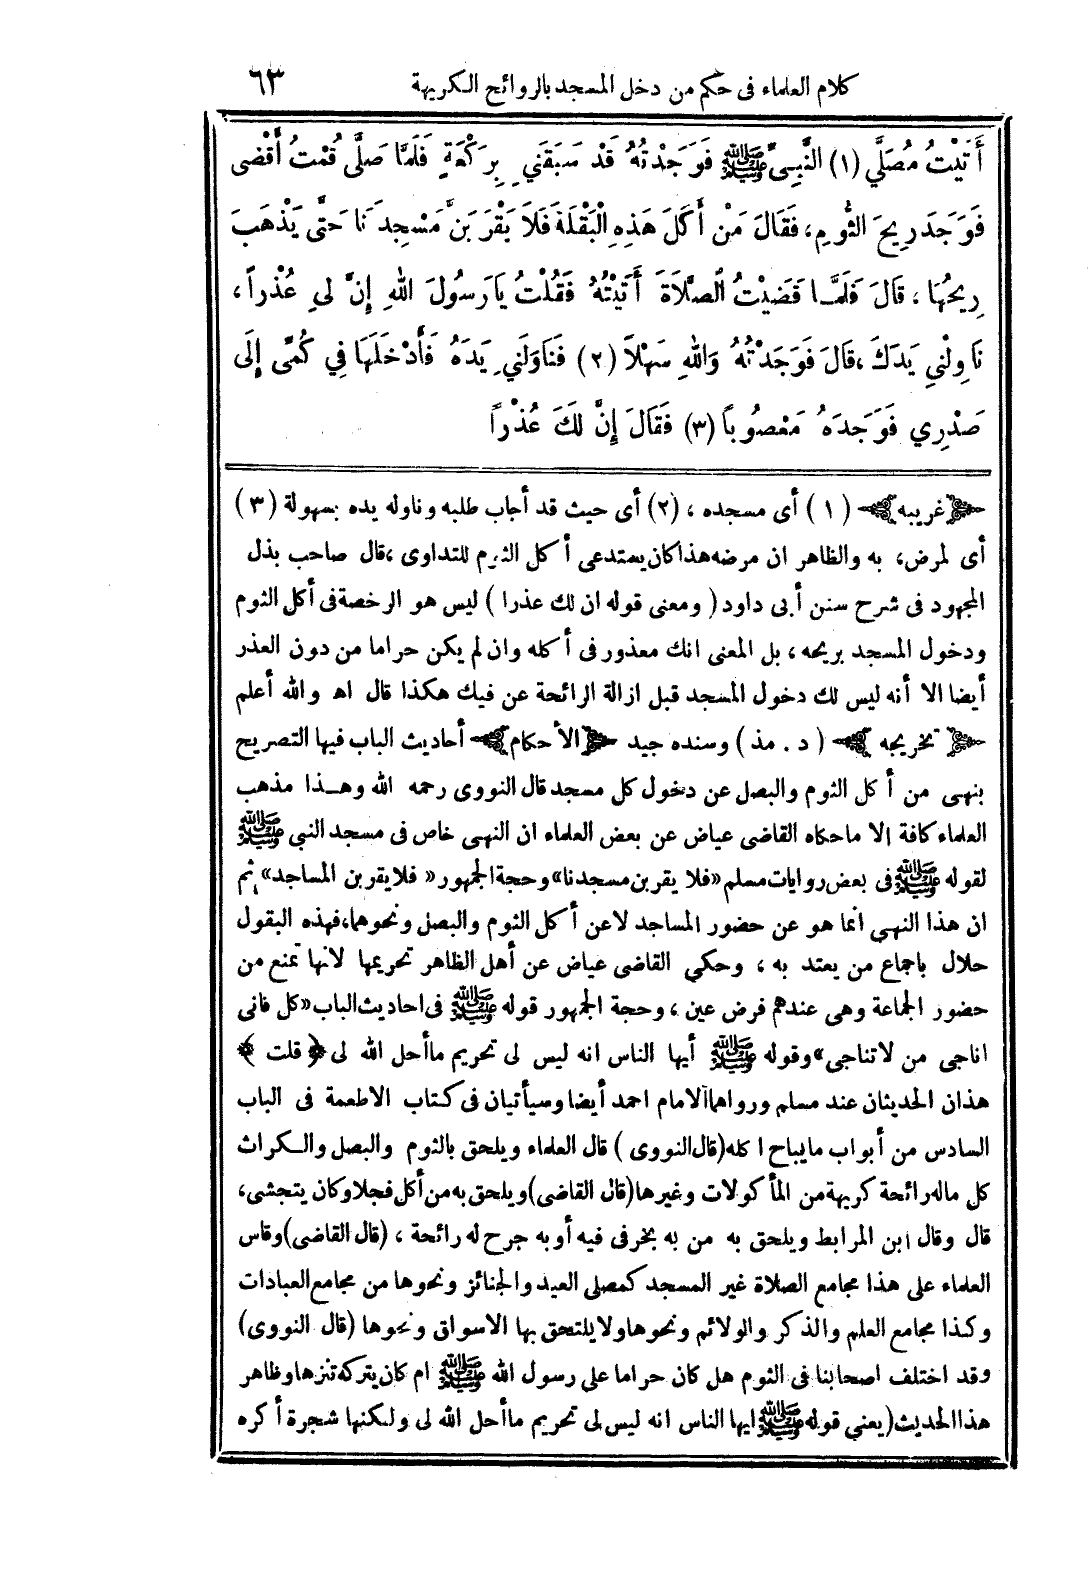 كلام العلماء فى حكم من دخل المسجد بالروائح الكريهة ٦٣
أَتَيْتُ مُصَلَّي (١) النَّبِيِّ ﷺ فَوَجَدْتُهُ قَدْ سَبَقَنِي بِرَكْعَةٍ فَلَمَّا صَلَّى قُمْتُ أَقْضِى
فَوَجَدَ رِيحَ الثُّومِ، فَقَالَ مَنْ أَكَلَ هَذِهِ الْبَقْلَةَ فَلَا يَقْرَبَنَّ مَسْجِدَنَا حَتَّى يَذْهَبَ
رِيحُهَا، قَالَ فَلَمَّا قَضَيْتُ الصَّلَاةَ أَتَيْتُهُ فَقُلْتُ يَا رَسُولَ اللهِ إِنَّ لِي عُذْراً،
نَاوِلْنِي يَدَكَ، قَالَ فَوَجَدْتُهُ وَاللهِ سَهْلاً (٢) فَنَاوَلَنِي يَدَهُ فَأَدْخَلَهَا فِي كُمِّى إِلَى
صَدْرِي فَوَجَدَهُ مَعْصُوباً (٣) فَقَالَ إِنَّ لَكَ عُذْراً
﴿غريبه﴾ (١) أى مسجده، (٢) أى حيث قد أجاب طلبه وناوله يده بسهولة (٣)
أى لمرض، به والظاهر ان مرضه هذا كان يستدعى أكل الثوم للتداوى، قال صاحب بذل
المجهود فى شرح سنن أبى داود (ومعنى قوله ان لك عذرا) ليس هو الرخصة فى أكل الثوم
ودخول المسجد بريحه، بل المعنى انك معذور فى أكله وان لم يكن حراما من دون العذر
أيضا الا أنه ليس لك دخول المسجد قبل ازالة الرائحة عن فيك هكذا قال اهـ والله أعلم
﴿تخريجه﴾ (د. مذ) وسنده جيد ﴿الأحكام﴾ أحاديث الباب فيها التصريح
بنهى من أكل الثوم والبصل عن دخول كل مسجد قال النووى رحمه الله وهذا مذهب
العلماء كافة الا ماحكاه القاضى عياض عن بعض العلماء ان النهى خاص فى مسجد النبي ﷺ
لقوله ﷺ فى بعض روايات مسلم «فلا يقربن مسجدنا» وحجة الجمهور «فلا يقربن المساجد» ثم
ان هذا النهى انما هو عن حضور المساجد لا عن أكل الثوم والبصل ونحوهما، فهذه البقول
حلال باجماع من يعتد به، وحكي القاضى عياض عن أهل الظاهر تحريمها لانها تمنع من
حضور الجماعة وهى عندهم فرض عين، وحجة الجمهور قوله ﷺ فى احاديث الباب «كل فانى
اناجى من لاتناجى» وقوله ﷺ أيها الناس انه ليس لى تحريم ماأحل الله لى ﴿قلت﴾
هذان الحديثان عند مسلم ورواهما الامام احمد أيضا وسيأتيان فى كتاب الاطعمة فى الباب
السادس من أبواب مايباح اكله (قال النووى) قال العلماء ويلحق بالثوم والبصل والكراث
كل ماله رائحة كريهة من المأكولات وغيرها (قال القاضى) ويلحق به من أكل فجلا وكان يتجشى،
قال وقال ابن المرابط ويلحق به من به بخر فى فيه أو به جرح له رائحة، (قال القاضى) وقاس
العلماء على هذا مجامع الصلاة غير المسجد كمصلى العيد والجنائز ونحوها من مجامع العبادات
وكذا مجامع العلم والذكر والولائم ونحوها ولا يلتحق بها الاسواق ونحوها (قال النووى)
وقد اختلف اصحابنا فى الثوم هل كان حراما على رسول الله ﷺ ام كان يتركه تنزها وظاهر
هذا الحديث (يعني قوله ﷺ ايها الناس انه ليس لى تحريم ماأحل الله لى ولكنها شجرة أكره